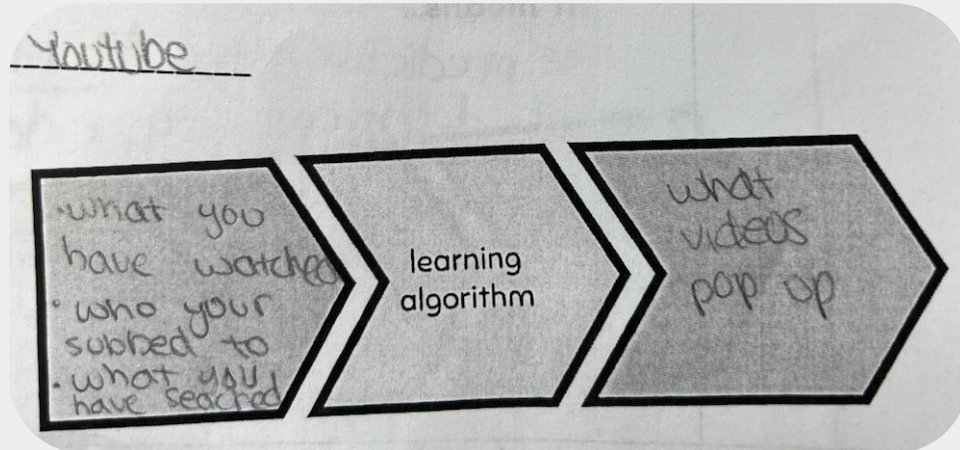 Youtube
• what you
have watched
• who your
subbed to
• what you
have seacred
learning
algorithm
what
videos
pop up